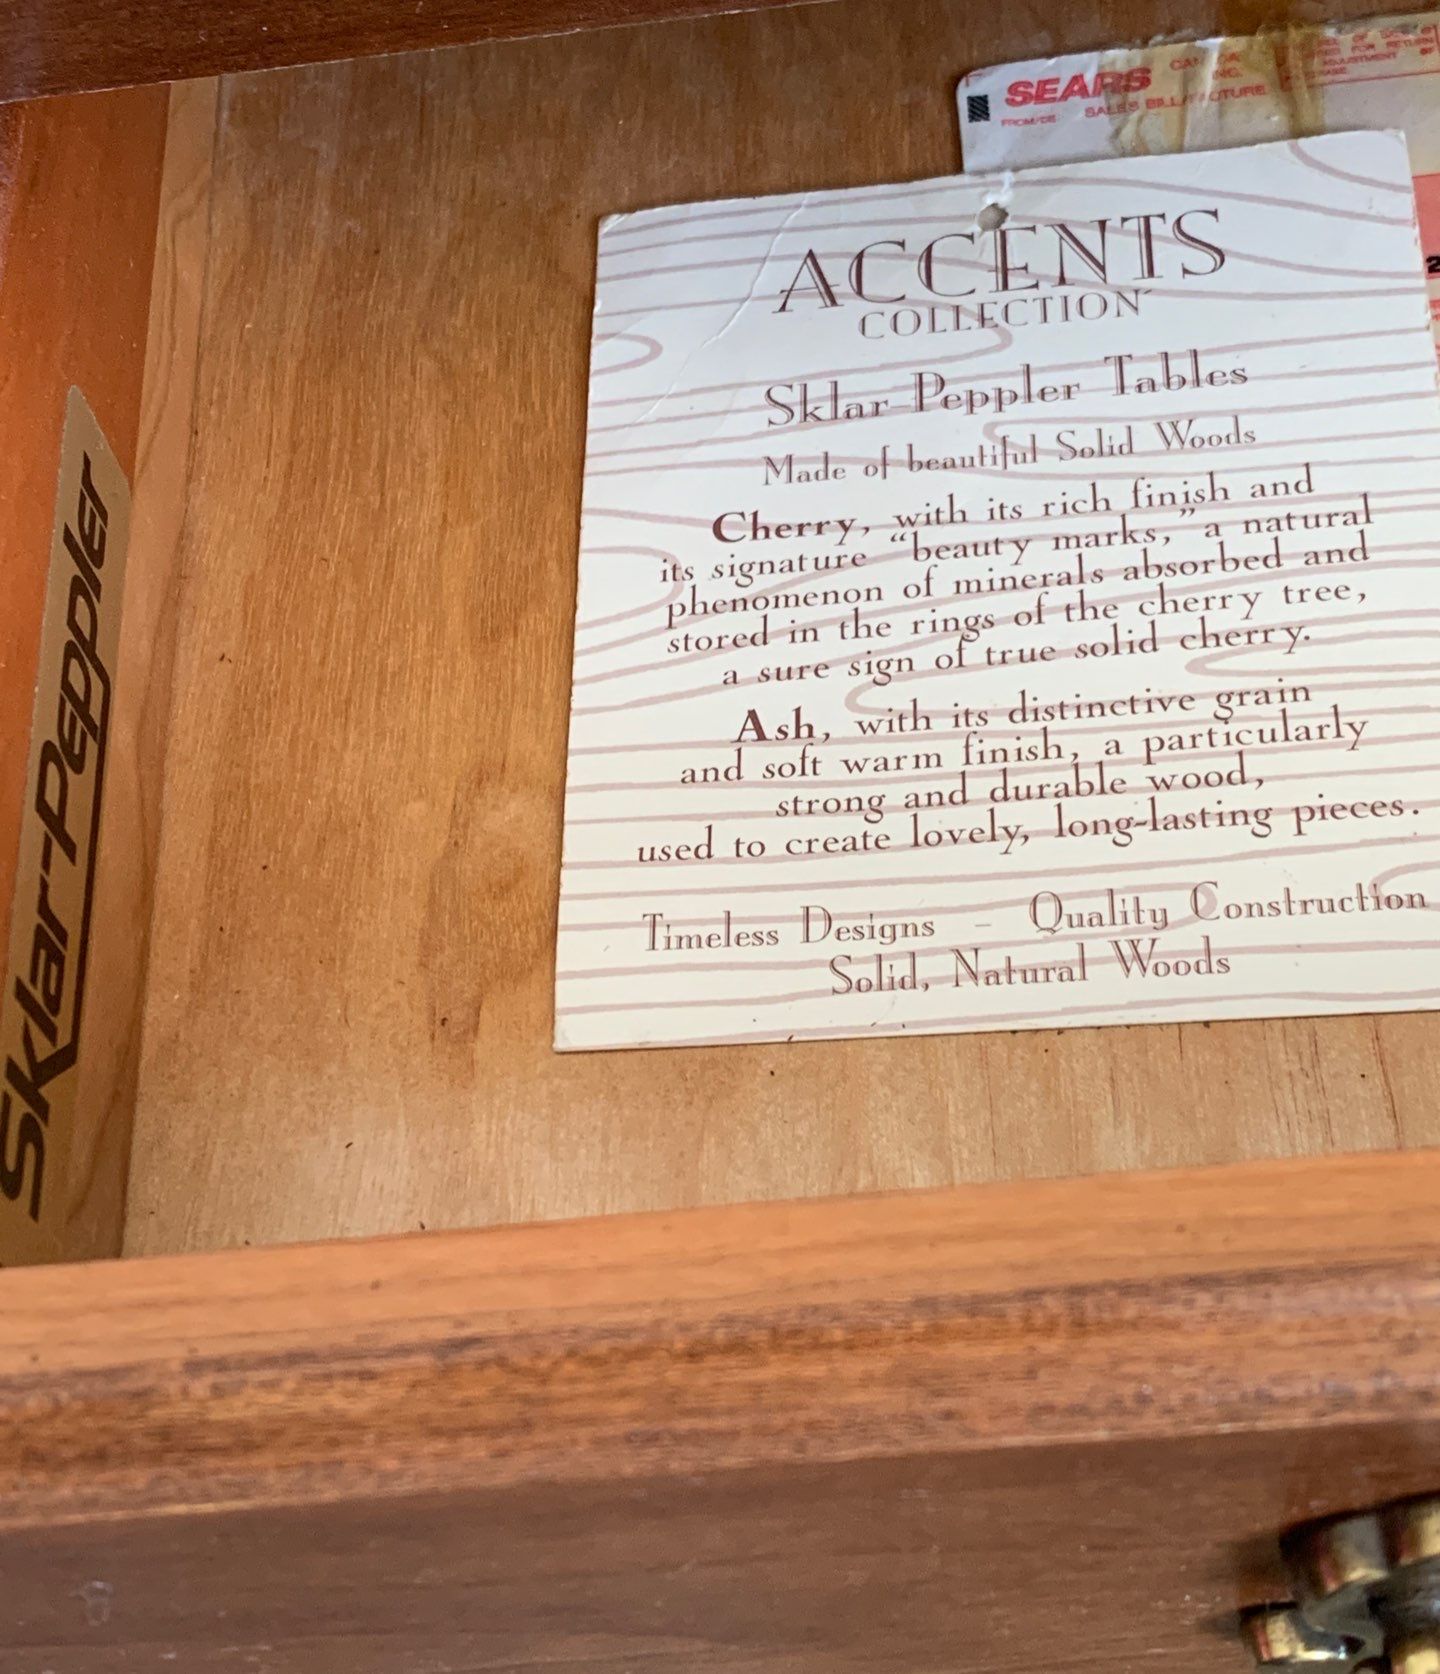 SEARS CANADA INC.
FROM/DE SALES BILL/FACTURE
FOR RETURN
ADJUSTMENT
ACCENTS
COLLECTION
Sklar-Peppler Tables
Made of beautiful Solid Woods
Cherry, with its rich finish and
its signature "beauty marks," a natural
phenomenon of minerals absorbed and
stored in the rings of the cherry tree,
a sure sign of true solid cherry.
Ash, with its distinctive grain
and soft warm finish, a particularly
strong and durable wood,
used to create lovely, long-lasting pieces.
Timeless Designs – Quality Construction
Solid, Natural Woods
Sklar-Peppler